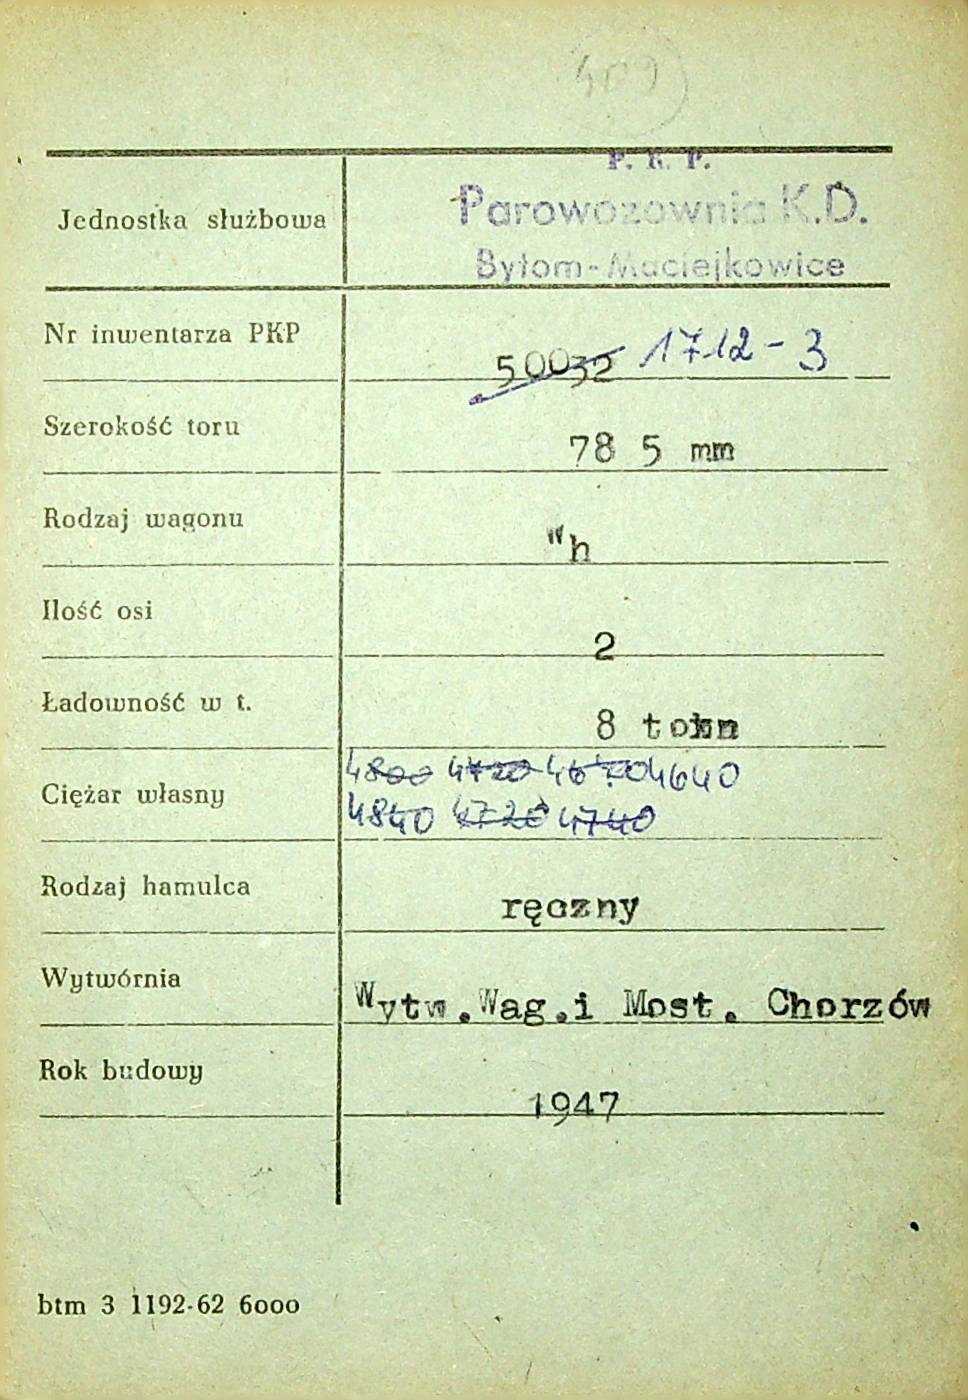 409
P. K. P.
Parowozownia K.D.
Jednostka służbowa
Bytom-Maciejkowice
Nr inwentarza PKP 50032 1712-3
Szerokość toru 78 5 mm
Rodzaj wagonu Wh
Ilość osi 2
Ładowność w t. 8 tonn
4800 4720 4640
Ciężar własny
4840 4720 4740
Rodzaj hamulca ręczny
Wytwórnia Wytw.Wag.i Most. Chorzów
Rok budowy 1947
btm 3 1192-62 6000